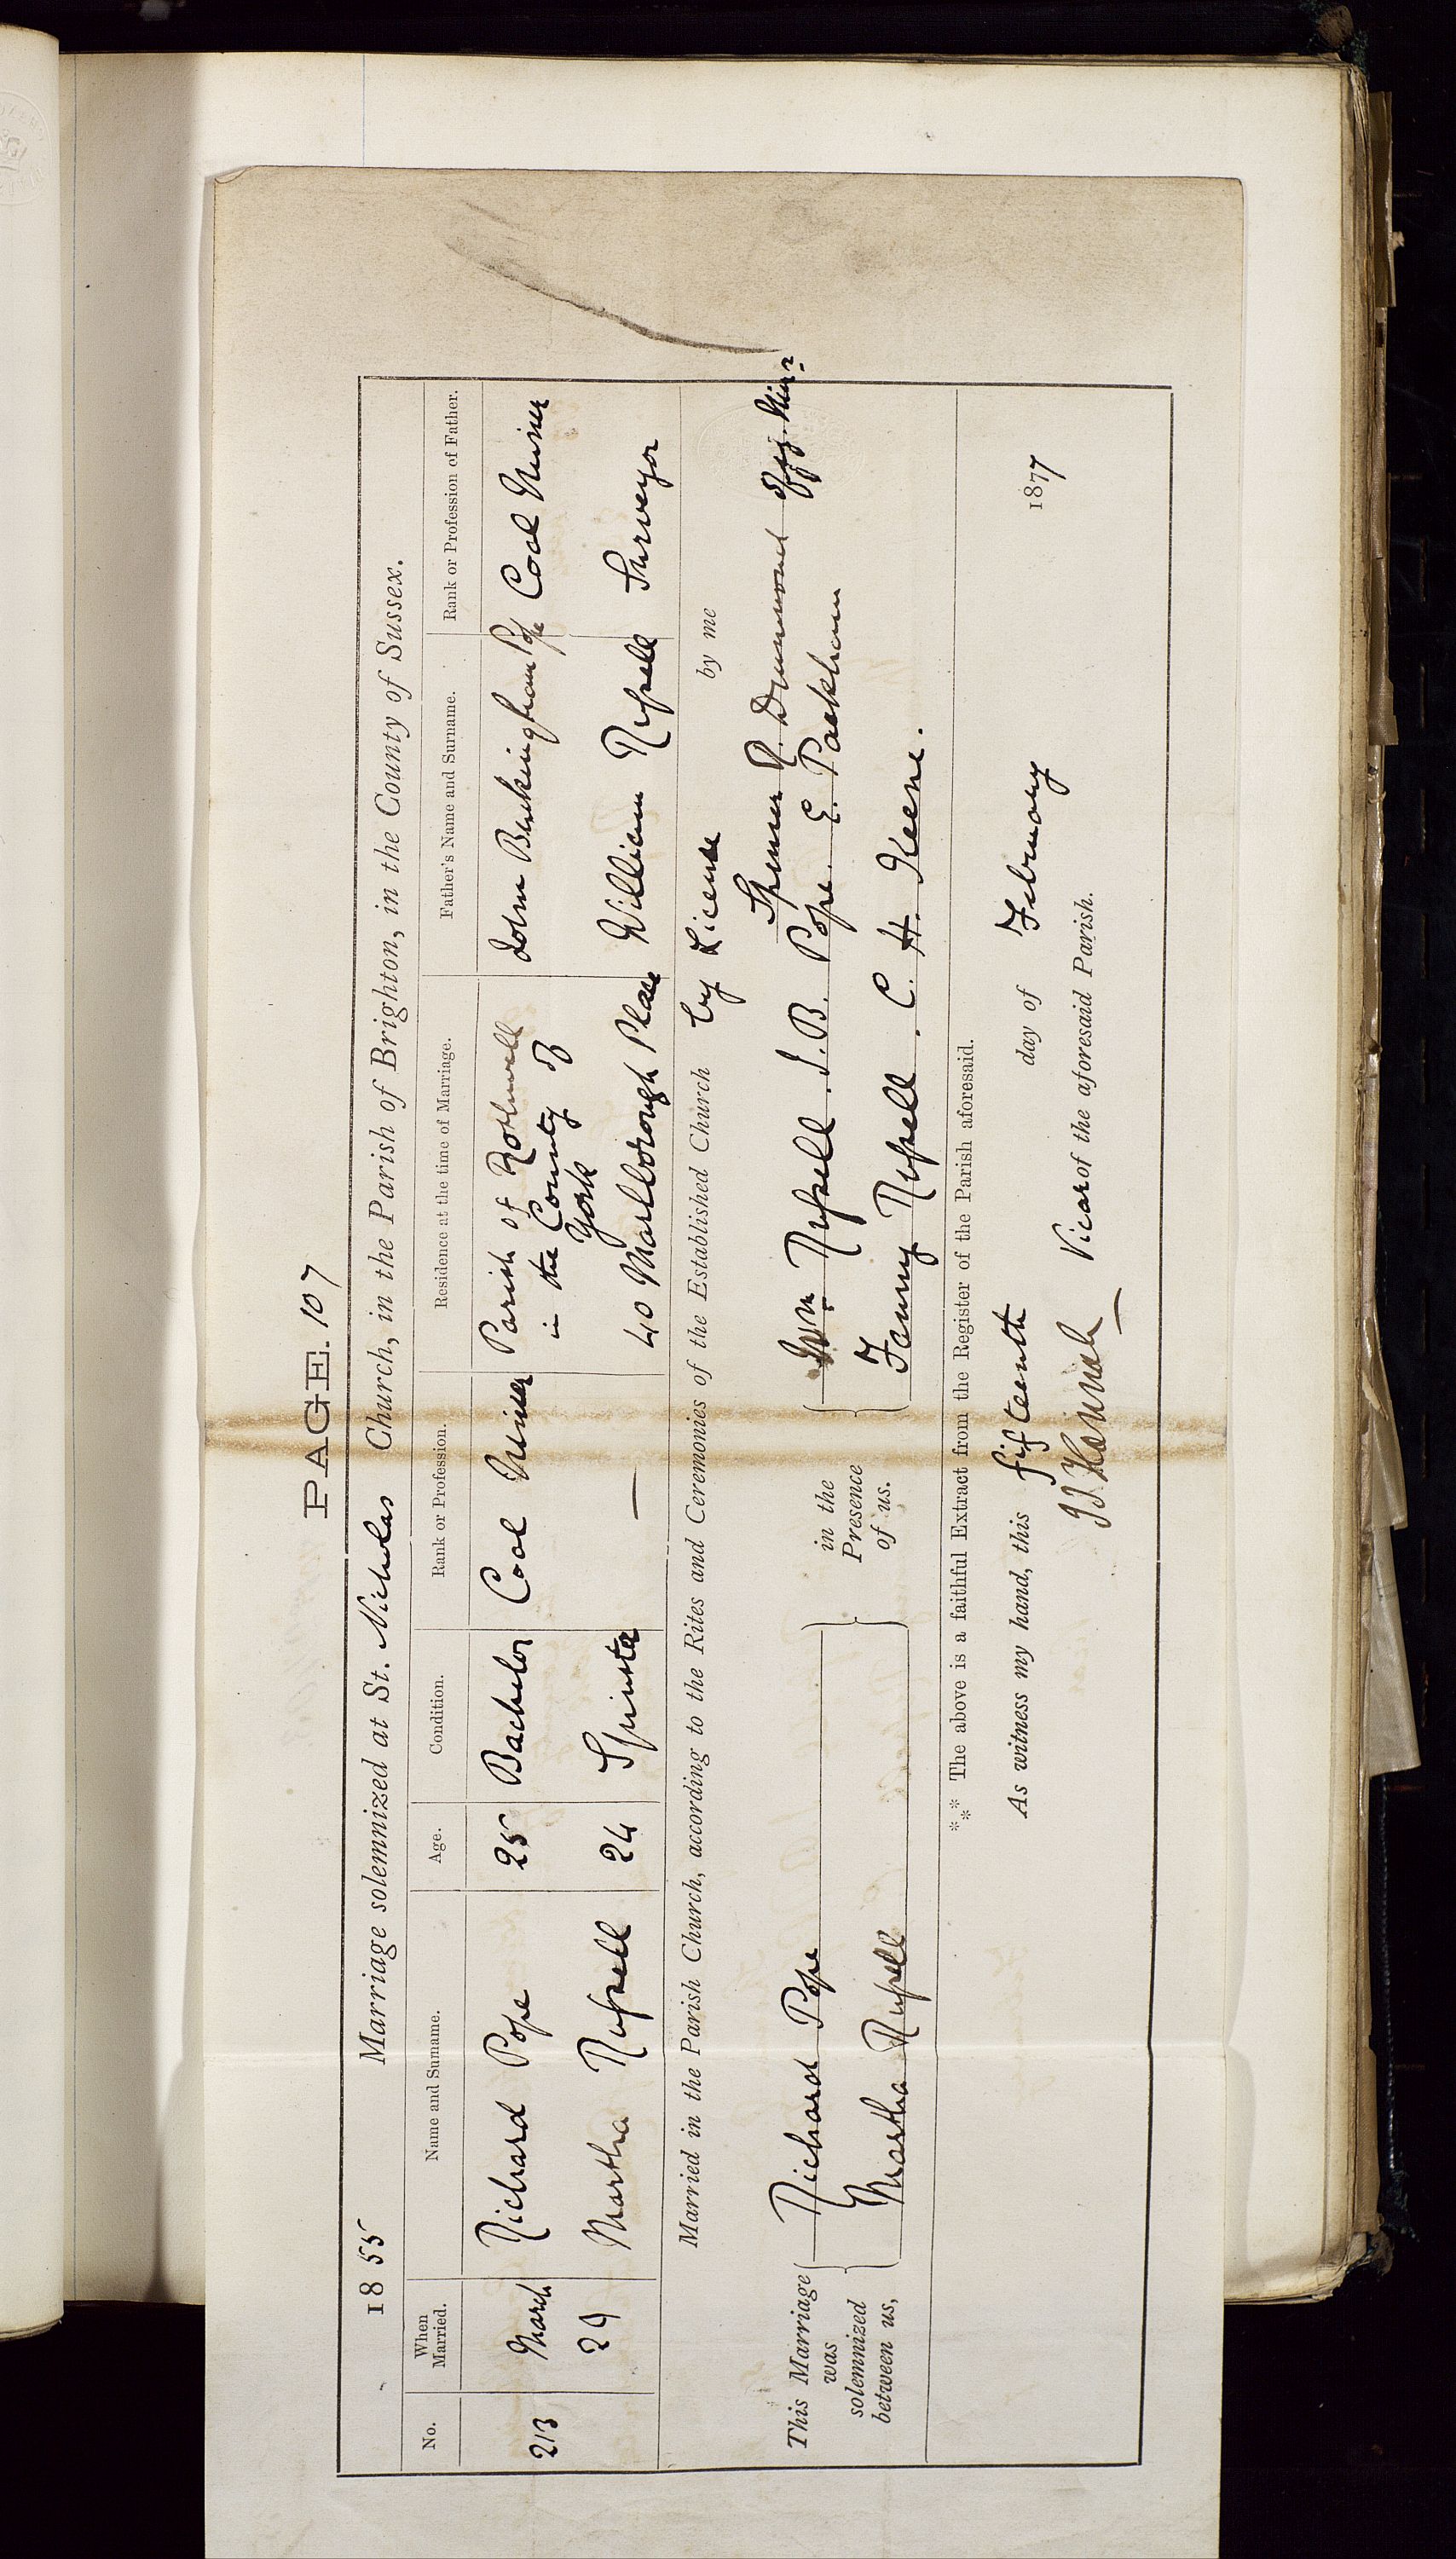 PAGE. 107
1855 Marriage solemnized at St. Nicholas Church, in the Parish of Brighton, in the County of Sussex.
No. When Married. Name and Surname. Age. Condition. Rank or Profession. Residence at the time of Marriage. Father's Name and Surname. Rank or Profession of Father.
213 March 29 Richard Pope 25 Bachelor Coal Miner Parish of Rothwell in the County of York John Buckingham Pope Coal Miner
Martha Russell 24 Spinster — 40 Marlborough Place William Russell Surveyor
Married in the Parish Church, according to the Rites and Ceremonies of the Established Church by License by me
Spencer R. Drummond Offg. Minr.
This Marriage was solemnized between us,
Richard Pope
Martha Russell
in the Presence of us.
Wm. Russell. J. B. Pope. E. Packham
Fanny Russell. C. H. Keene.
*** The above is a faithful Extract from the Register of the Parish aforesaid.
As witness my hand, this fifteenth day of February 1877
J J. Hannah Vicar of the aforesaid Parish.